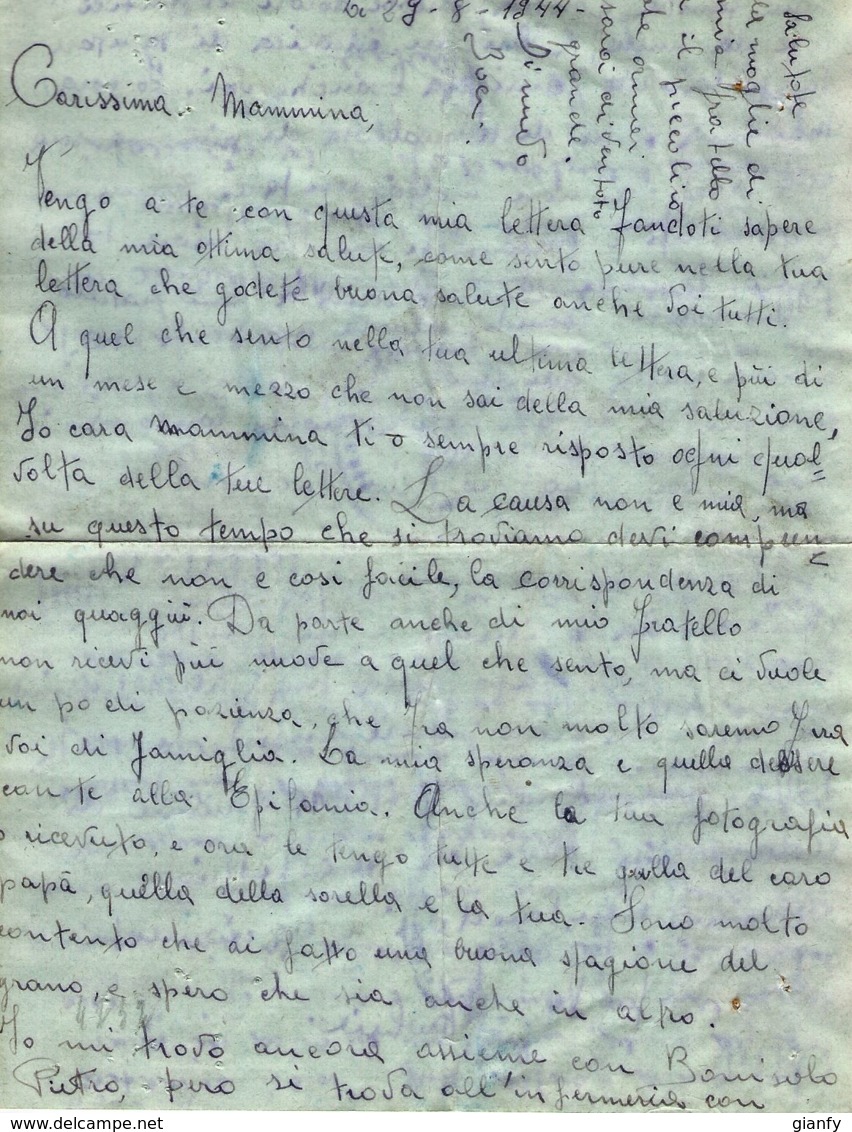 li 29-8-1944-
Carissima Mammina,
Vengo a te con questa mia lettera fandoti sapere
della mia ottima salute, come sento pure nella tua
lettera che godete buona salute anche voi tutti.
A quel che sento nella tua ultima lettera, e piú di
un mese e mezzo che non sai della mia saluzione,
Io cara mammina ti o sempre risposto ogni qual=
volta della tue lettere. La causa non e mia, ma
su questo tempo che si troviamo devi compren
dere che non e cosi facile, la corrispondenza di
noi quaggiú. Da parte anche di mio fratello
non ricevi piú nuove a quel che sento, ma ci vuole
un po di pazienza, che fra non molto saremo fra
voi di famiglia. La mia speranza e quella dessere
con te alla Epifania. Anche la tua fotografia
o ricevuto, e ora le tengo tutte e tre quella del caro
papá, quella della sorella e la tua. Sono molto
contento che ai fatto una buona stagione del
grano, e spero che sia anche in altro.
4432
Io mi trovo ancora assieme con Bonisolo
Pietro, pero si trova all'infermeria con
salute
la moglie di
mia fratello
il piccolino
che ormai
sara diventato
grande.
Di nuovo
Baci.
delcampe.net
gianfy